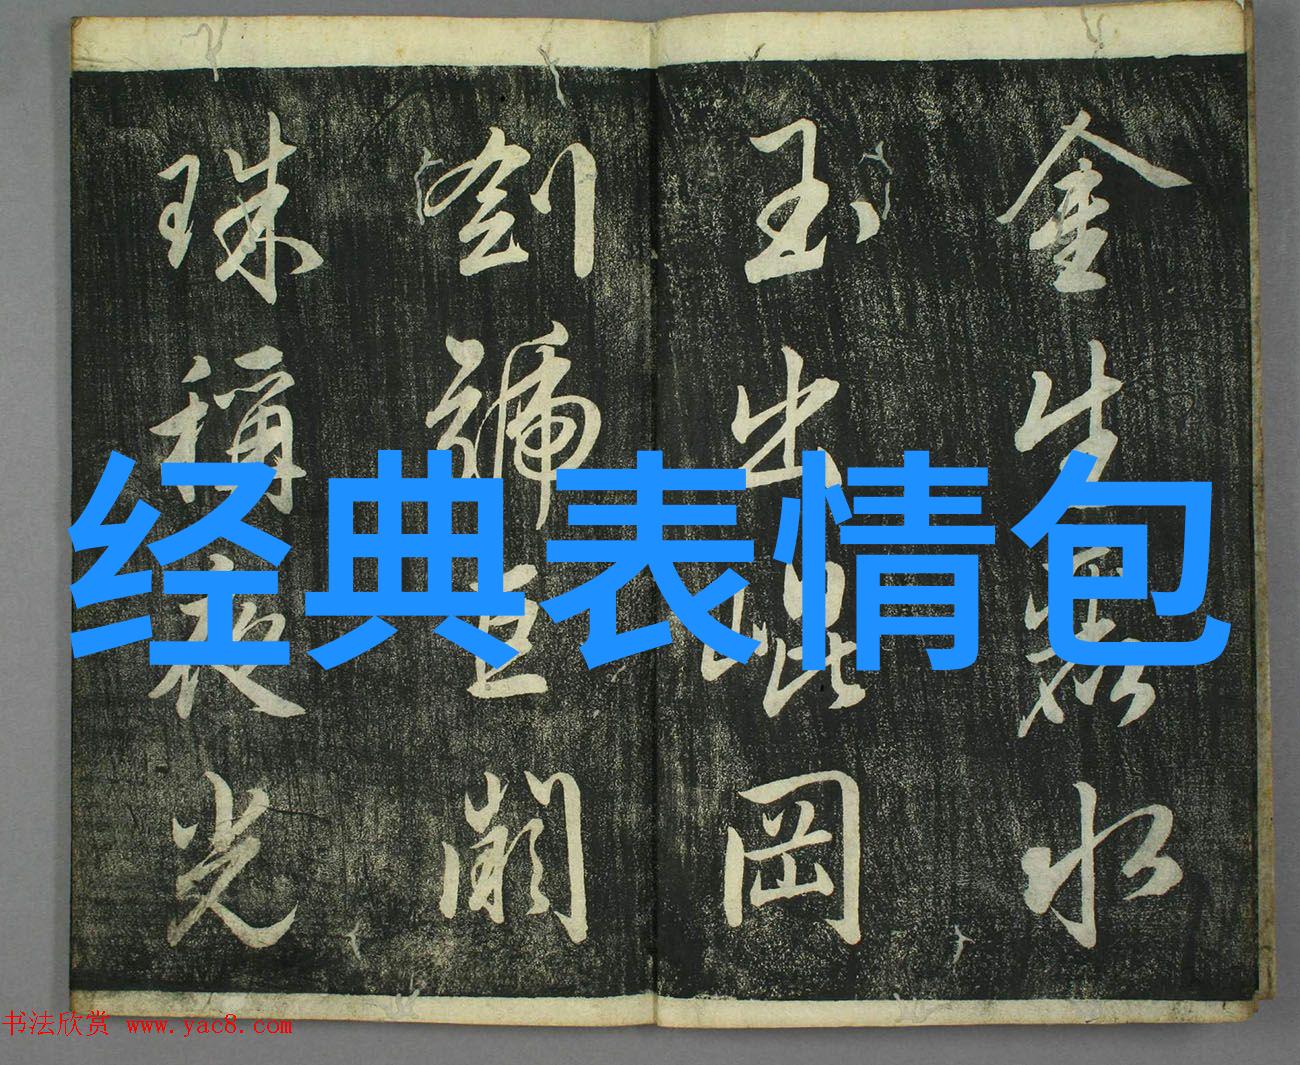 金生麗水
玉出崑岡
劍號巨闕
珠稱夜光
经典表情包
书法欣赏 www.yac8.com